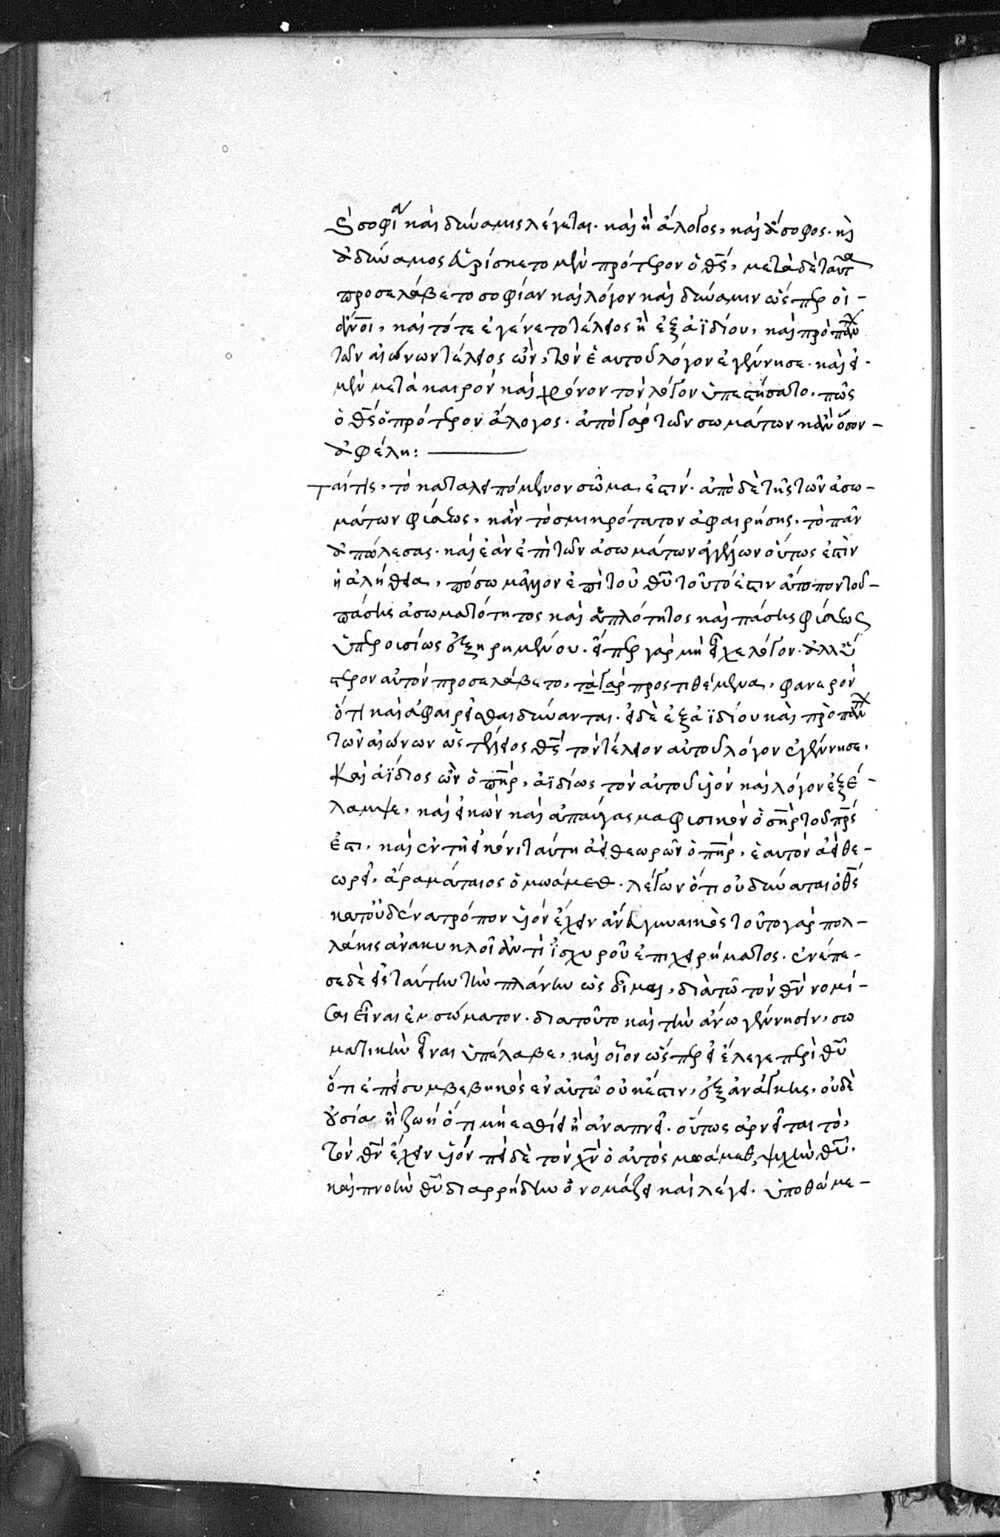 καὶ σοφία καὶ δύναμις λέγεται. καὶ ἢ ἄλογος, καὶ ἄσοφος. καὶ
ἀδύναμος εὑρίσκετο μὲν πρότερον ὁ θς, μετὰ δὲ ταῦτα
προσελάβετο σοφίαν καὶ λόγον καὶ δύναμιν ὥσπερ οἱ
ἄνοι, καὶ τότε ἐγένετο τέλειος ἢ ἐξ ἀϊδίου, καὶ πρὸ πάντων
τῶν αἰώνων τέλειος ὢν, τὸν ἑαυτοῦ λόγον ἐγέννησε. καὶ εἰ
μὲν μετὰ καιρὸν καὶ χρόνον τὸν λόγον ὑπεστήσατο, πῶς
ὁ θς ὁ πρότερον ἄλογος. ἀπὸ γὰρ τῶν σωμάτων κἂν ὅσον
ἀφέλη:
ταί τις, τὸ καταλειπόμενον σῶμα ἐστίν. ἀπὸ δὲ τῆς τῶν ἀσω-
μάτων φύσεως, κἂν τὸ σμικρότατον ἀφαιρήσης, τὸ πᾶν
ἀπώλεσας. καὶ ἐὰν ἐπὶ τῶν ἀσωμάτων ἀγγέλων οὕτως ἐστὶν
ἡ ἀλήθεια, πόσω μᾶλλον ἐπὶ τοῦ θυ τοῦτό ἐστιν ἀτόπον τοῦ
πάσης ἀσωματότητος καὶ ἁπλότητος καὶ πάσης φύσεως
ὑπερουσίως ἐξηρημένου. εἴπερ γὰρ μὴ εἶχε λόγον. ἀλλ' ὕ
στερον αὐτὸν προσελάβετο, τὰ γὰρ προστιθέμενα, φανερὸν
ὅτι καὶ ἀφαιρεῖσθαι δύνανται. εἰ δὲ ἐξ ἀϊδίου καὶ πρὸ πάντων
τῶν αἰώνων ὡς τέλειος θς τὸν τέλειον αὐτοῦ λόγον ἐγέννησε.
καὶ ἀΐδιος ὢν ὁ πηρ, ἀϊδίως τὸν αὐτοῦ υἱὸν καὶ λόγον ἐξέ-
λαμψε, καὶ εἰκὼν καὶ ἀπαύγασμα φυσικὸν ὁ σηρ τοῦ πρς
ἐστι, καὶ ἐν τῇ εἰκόνι ταύτη ἀεὶ θεωρῶν ὁ πηρ, ἑαυτὸν ἀεὶ θε-
ωρεῖ. ἄρα μάταιος ὁ μωάμεθ. λέγων ὅτι οὐ δύναται ὁ θς
κατ' οὐδένα τρόπον υἱὸν ἔχειν ἄνευ γυναικὸς τοῦτο γὰρ πολ-
λάκις ἀνακυκλοῖ ἀντὶ ἰσχυροῦ ἐπιχειρήματος. ἐνέπε-
σε δὲ εἰς ταύτην τὴν πλάνην ὡς οἶμαι, διὰ τὸ τὸν θν νομί-
σαι εἶναι ἐνσώματον. διὰ τοῦτο καὶ τὴν ἄνω γέννησιν, σω
ματικὴν εἶναι ὑπέλαβε, καὶ οἷον ὥσπερ εἰ ἔλεγε περὶ θυ
ὅτι ἐπεὶ συμβεβηκὸς ἐν αὐτῶ οὐκ ἔστιν, ἐξ ἀνάγκης, οὐδὲ
οὐσία ἢ ζωὴ ὅτι μὴ ἐσθίει ἢ ἀναπνεῖ. οὕτως ἀρνεῖται τὸ,
τὸν θν ἔχειν υἱόν ἐπεὶ δὲ τὸν χν ὁ αὐτὸς μωάμεθ, ψυχὴν θυ.
καὶ πνοὴν θυ διαρρήδην ὀνομάζει καὶ λέγει. ὑποθώμε-